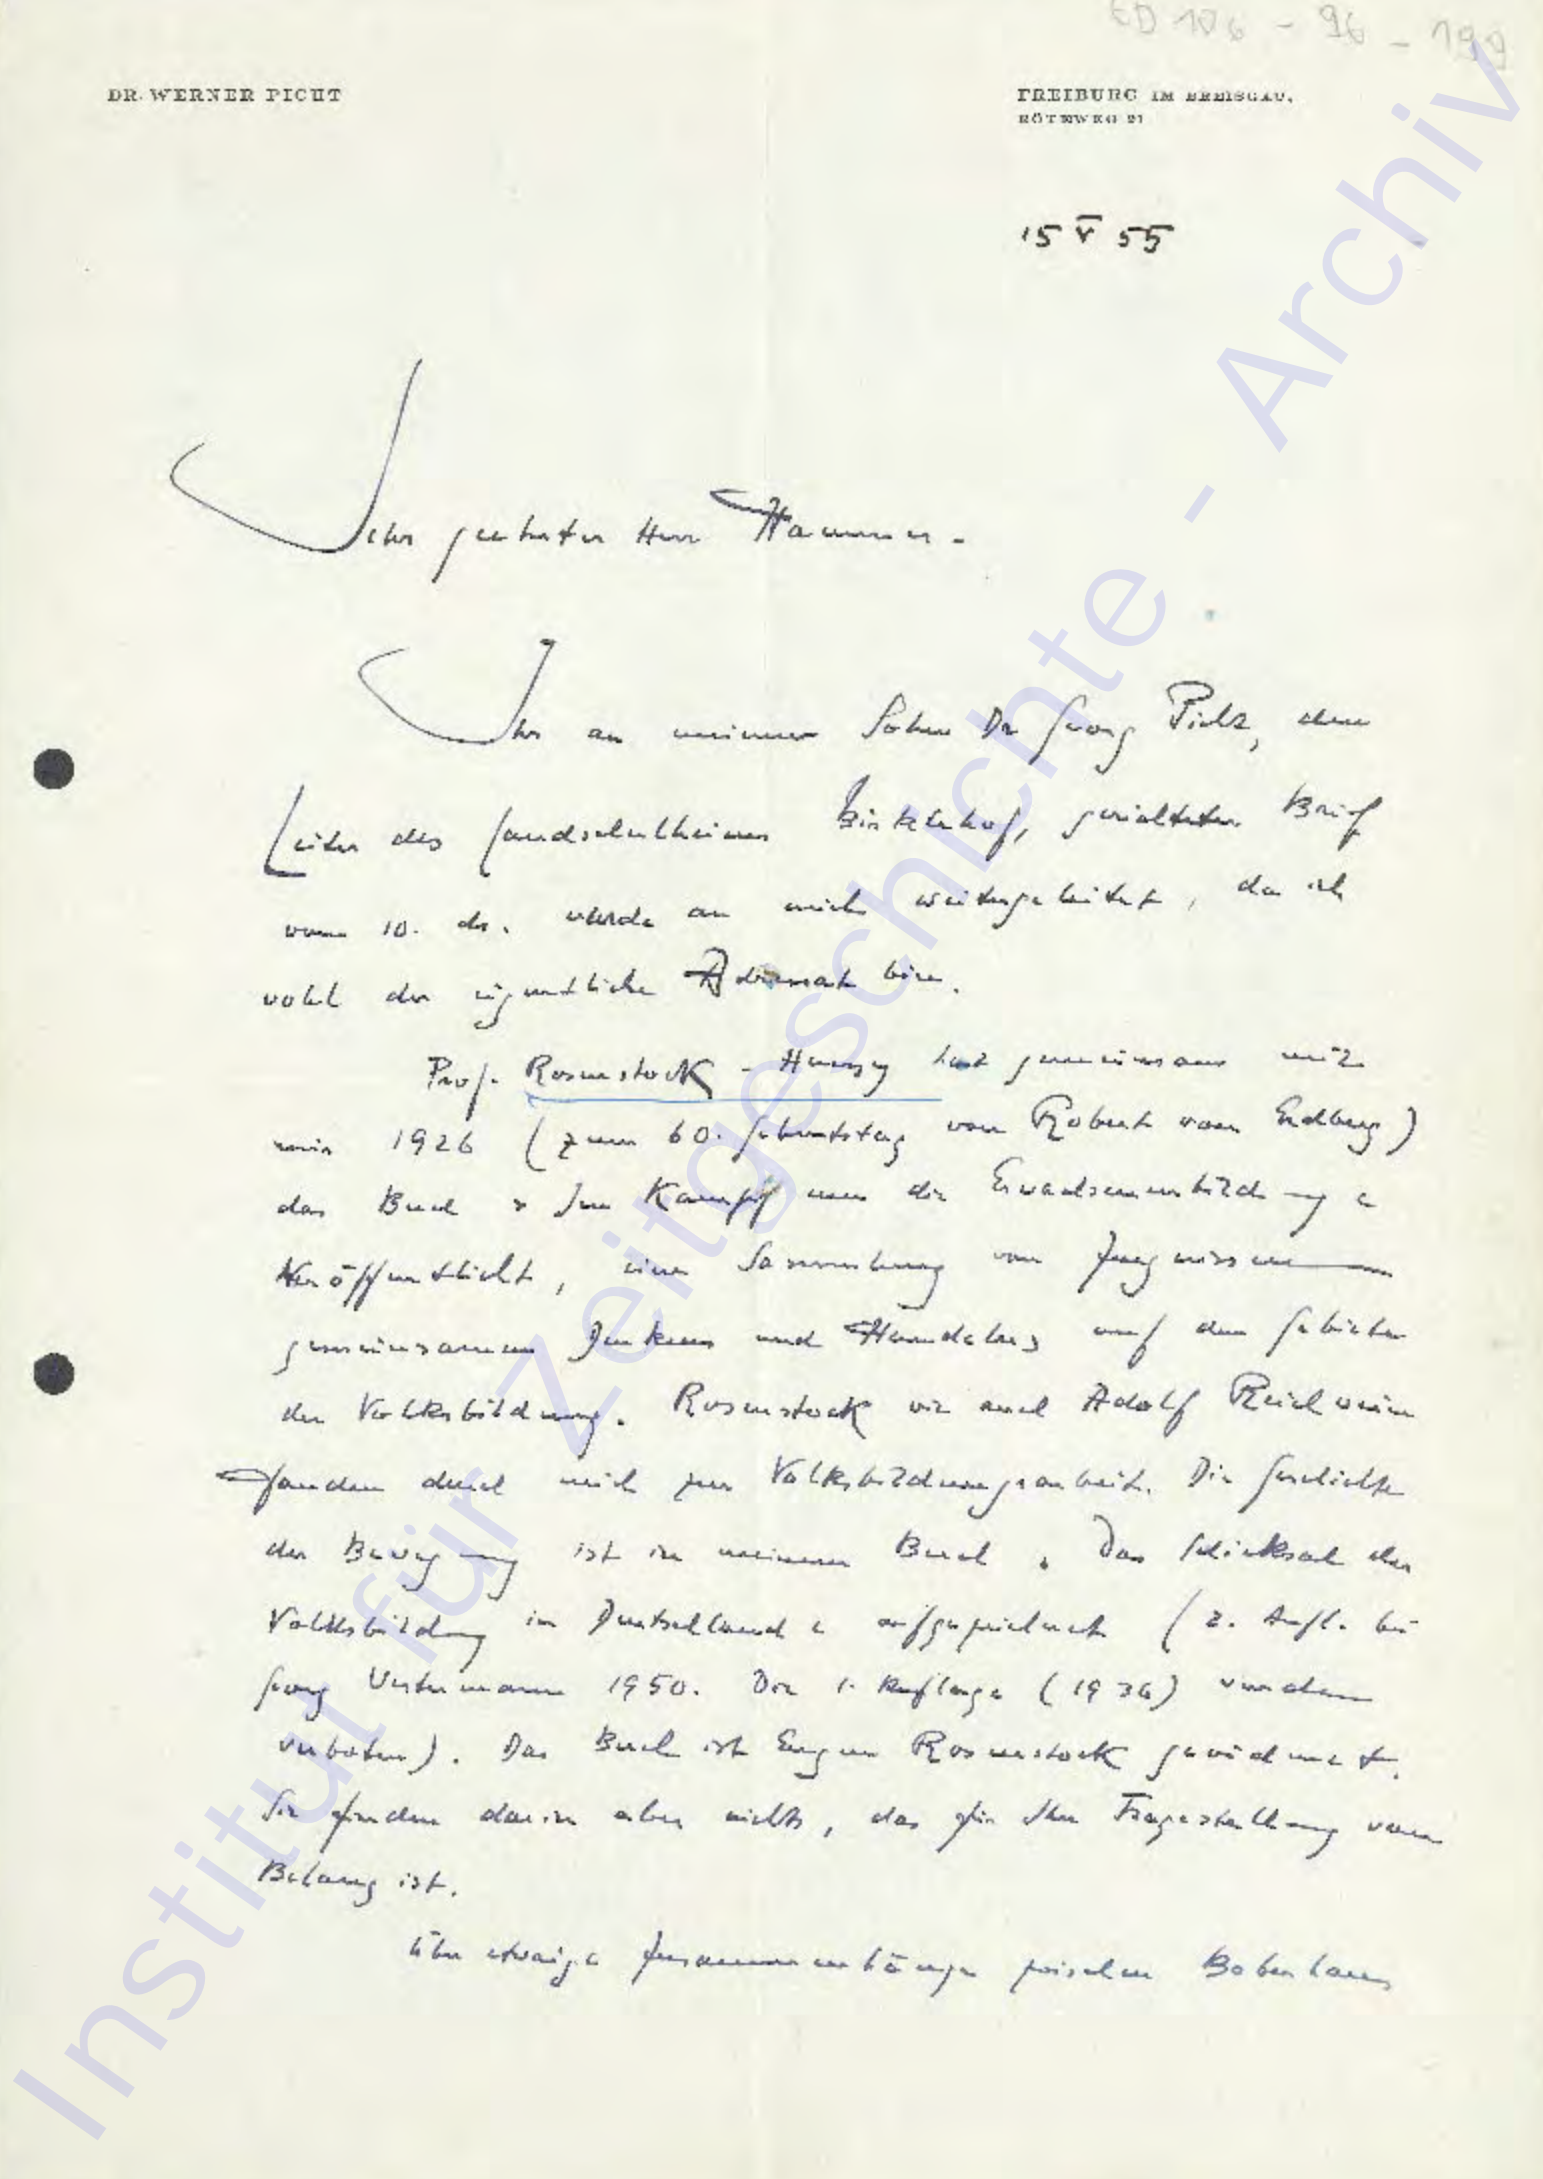 ED 106 - 96 - 199
DR. WERNER PICHT
FREIBURG IM BREISGAU,
RÖTEWEG 21
15 V 55
Sehr geehrter Herr Hammer.
Ihr an meinen Sohn Dr Georg Picht, dem
Leiter des Landschulheims Birklehof, gerichteter Brief
vom 10. ds. wurde an mich weitergeleitet, da ich
wohl der eigentliche Adressat bin.
Prof. Rosenstock-Huessy hat gemeinsam mit
mir 1926 (zum 60. Geburtstag von Robert von Erdberg)
das Buch "Im Kampf um die Erwachsenenbildung"
veröffentlicht, eine Sammlung von Zeugnissen
gemeinsamen Denkens und Handelns auf dem Gebiete
der Volksbildung. Rosenstock wie auch Adolf Reichwein
fanden durch mich zur Volksbildungsarbeit. Die Geschichte
der Bewegung ist in meinem Buch "Das Schicksal der
Volksbildung in Deutschland" aufgezeichnet (2. Aufl. bei
Georg Westermann 1950. Die 1. Auflage (1936) wurde
verboten). Das Buch ist Eugen Rosenstock gewidmet.
Sie finden darin aber nichts, das für Ihre Fragestellung von
Belang ist.
Über etwaige Zusammenhänge zwischen Boberhaus
Institut für Zeitgeschichte - Archiv